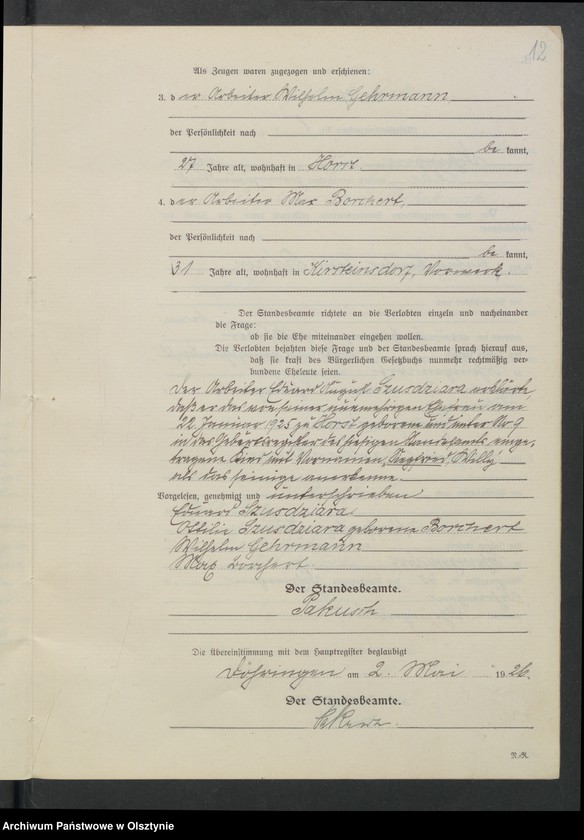 12
Als Zeugen waren zugezogen und erschienen:
3. der Arbeiter Wilhelm Gehrmann
der Persönlichkeit nach
be kannt,
27 Jahre alt, wohnhaft in Horst
4. der Arbeiter Max Borchert,
der Persönlichkeit nach
be kannt,
31 Jahre alt, wohnhaft in Kirsteinsdorf, Vorwerk.
Der Standesbeamte richtete an die Verlobten einzeln und nacheinander
die Frage:
ob sie die Ehe miteinander eingehen wollen.
Die Verlobten bejahten diese Frage und der Standesbeamte sprach hierauf aus,
daß sie kraft des Bürgerlichen Gesetzbuchs nunmehr rechtmäßig ver-
bundene Eheleute seien.
Der Arbeiter Eduard August Szusdziara erklärte
daß er das von seiner nunmehrigen Ehefrau am
22. Januar 1925 zu Horst geborene und unter Nr 9
in das Geburtsregister des hiesigen Standesamts einge-
tragene Kind mit Vornamen „Siegfried Willy"
als das seinige anerkenne.
Vorgelesen, genehmigt und unterschrieben
Eduard Szusdziara
Ottilie Szusdziara geborene Borchert
Wilhelm Gehrmann
Max Borchert.
Der Standesbeamte.
Pakusch
Die Übereinstimmung mit dem Hauptregister beglaubigt
Döhringen am 2. Mai 1926.
Der Standesbeamte.
Archiwum Państwowe w Olsztynie